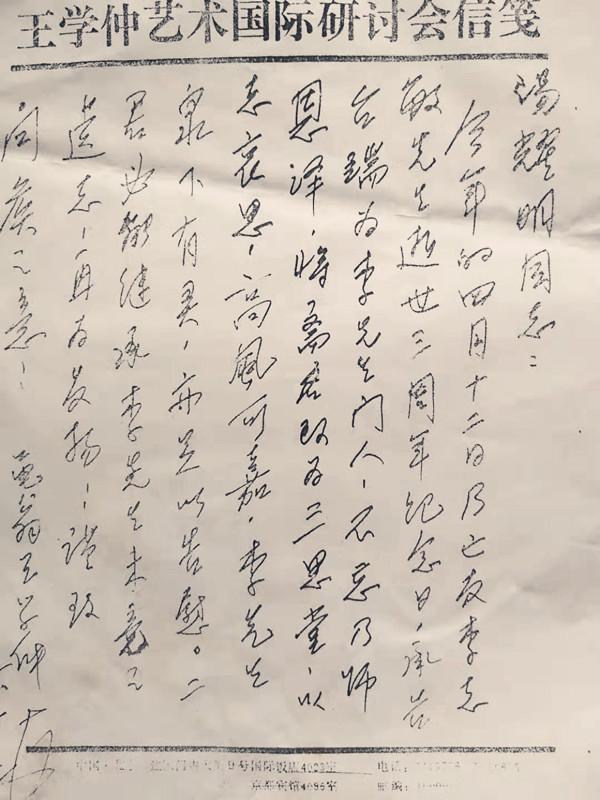 王学仲艺术国际研讨会信笺
湯耀明同志：
今年的四月十二日乃亡友李志
敏先生逝世三周年纪念日，承告
台端为李先生门人，不忘乃师
恩泽，将斋名改为三思堂，以
志哀思，高風可嘉，李先生
泉下有灵，亦足以告慰。二
君必能继承李先生未竟之
遗志，再为发扬，谨致
问候之意，
黾翁王学仲
中国·北京 9号国际饭店4009室 电话：
京都宾馆4086室 邮编：